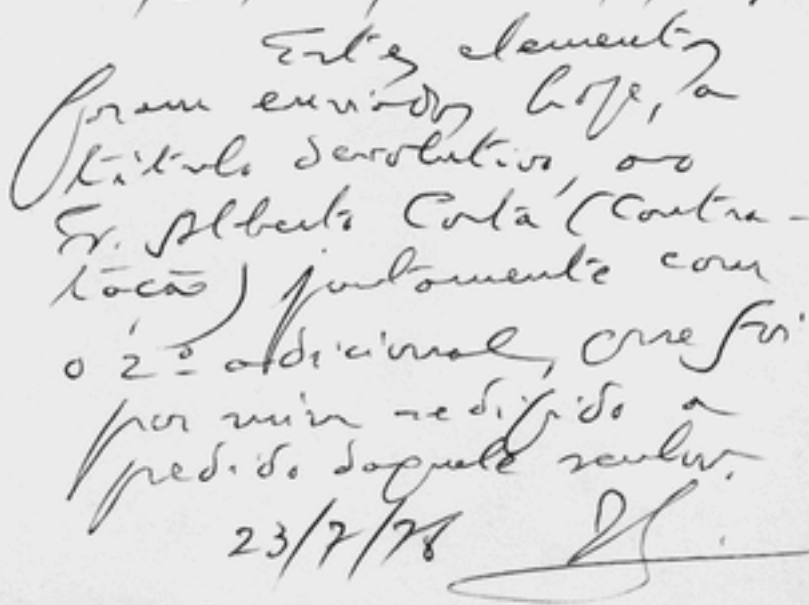 Estes elementos
foram enviados hoje, a
título devolutivo, ao
Sr. Alberto Costa (Contra-
tação) juntamente com
o 2º adicional, que foi
por mim redigido a
pedido daquele senhor.
23/7/78